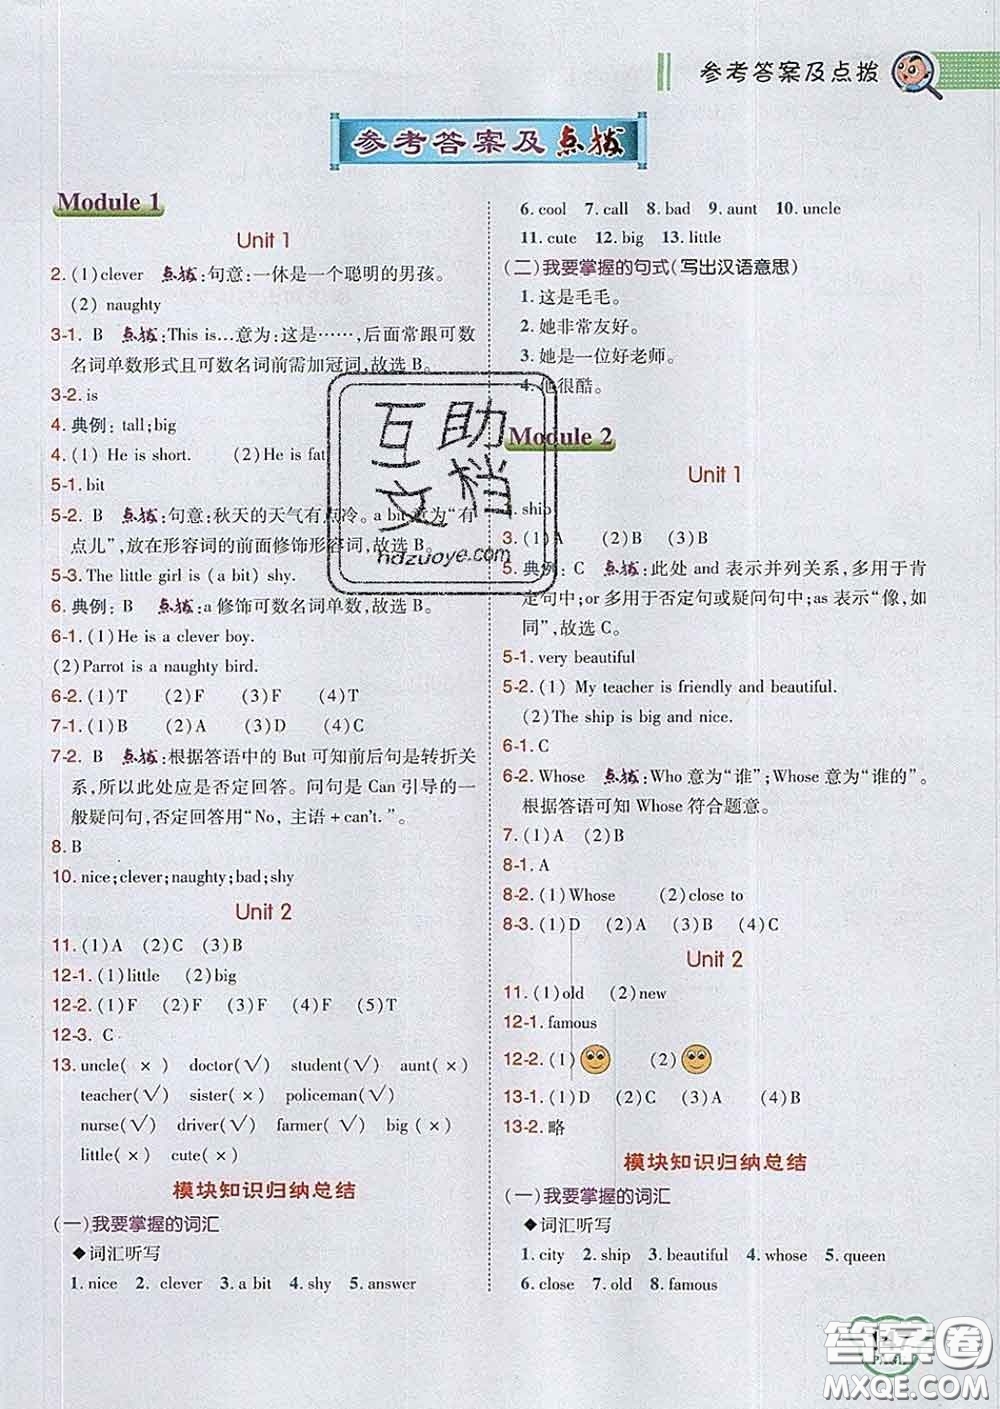 参考答案及点拨
参考答案及点拨
Module 1
Unit 1
2. (1)clever 点拨:句意:一休是一个聪明的男孩。
(2) naughty
3-1. B 点拨:This is…意为:这是……,后面常跟可数
名词单数形式且可数名词前需加冠词,故选 B。
3-2. is
4. 典例: tall;big
4. (1) He is short. (2)He is fat
5-1. bit
5-2. B 点拨:句意:秋天的天气有点冷。a bit 意为“有
点儿”,放在形容词的前面修饰形容词,故选 B。
5-3. The little girl is (a bit) shy.
6. 典例: B 点拨:a 修饰可数名词单数,故选 B。
6-1. (1)He is a clever boy.
(2)Parrot is a naughty bird.
6-2. (1)T (2)F (3)F (4)T
7-1. (1)B (2)A (3)D (4)C
7-2. B 点拨:根据答语中的 But 可知前后句是转折关
系,所以此处应是否定回答。问句是 Can 引导的一
般疑问句,否定回答用“No, 主语 + can't.”。
8. B
10. nice;clever;naughty;bad;shy
Unit 2
11. (1)A (2)C (3)B
12-1. (1)little (2)big
12-2. (1)F (2)F (3)F (4)F (5)T
12-3. C
13. uncle( × ) doctor(√) student(√) aunt(×)
teacher(√) sister( × ) policeman(√)
nurse(√) driver(√) farmer(√) brother( × )
little( × ) cute( × )
模块知识归纳总结
(一)我要掌握的词汇
◆词汇听写
1. nice 2. clever 3. a bit 4. shy 5. answer
6. cool 7. call 8. bad 9. aunt 10. uncle
11. cute 12. big 13. little
(二)我要掌握的句式(写出汉语意思)
1. 这是毛毛。
2. 她非常友好。
3. 她是一位好老师。
4. 他很酷。
Module 2
Unit 1
ship
3. (1)A (2)B (3)B
5. 典例: C 点拨:此处 and 表示并列关系,多用于肯
定句中;or 多用于否定句或疑问句中;as 表示“像,如
同”,故选 C。
5-1. very beautiful
5-2. (1) My teacher is friendly and beautiful.
(2)The ship is big and nice.
6-1. C
6-2. Whose 点拨:Who 意为“谁”;Whose 意为“谁的”。
根据答语可知 Whose 符合题意。
7. (1)A (2)B
8-1. A
8-2. (1)Whose (2)close to
8-3. (1)D (2)A (3)B (4)C
Unit 2
11. (1)old (2)new
12-1. famous
12-2. (1) (2)
13-1. (1)D (2)C (3)A (4)B
13-2. 略
模块知识归纳总结
(一)我要掌握的词汇
◆词汇听写
1. city 2. ship 3. beautiful 4. whose 5. queen
6. close 7. old 8. famous
互助
文档
hdzuoye.com
答案圈
MXQE.COM